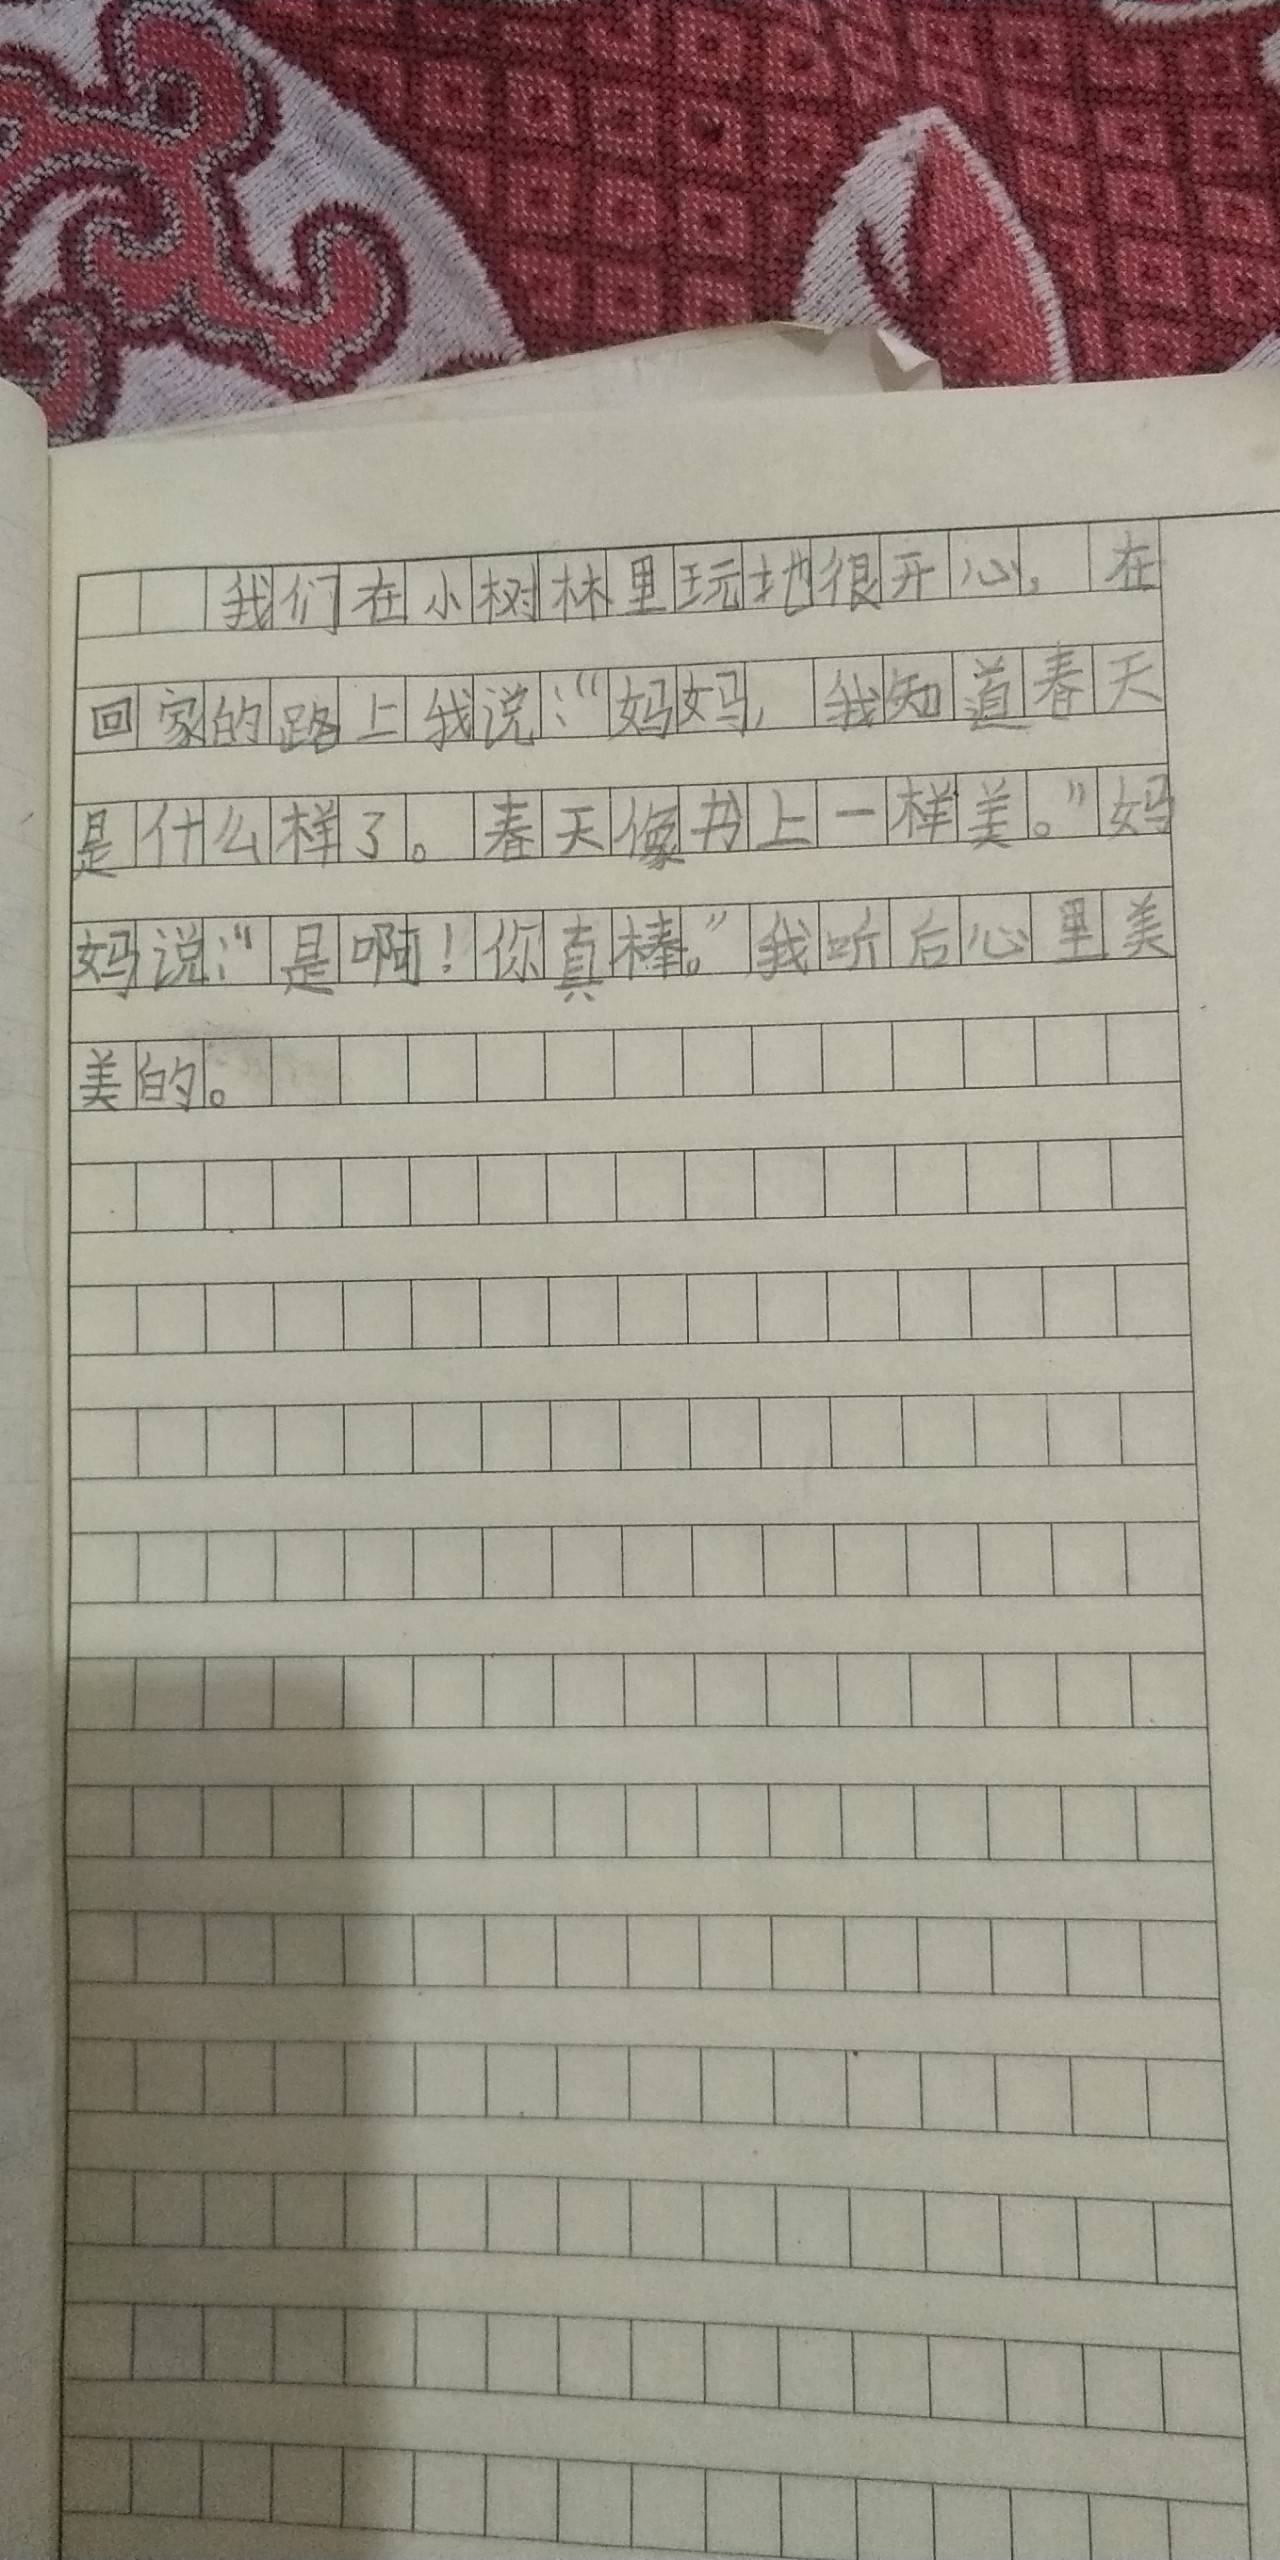 我们在小树林里玩地很开心，在
回家的路上我说：“妈妈，我知道春天
是什么样了。春天像书上一样美。”妈
妈说：“是啊！你真棒。”我听后心里美
美的。